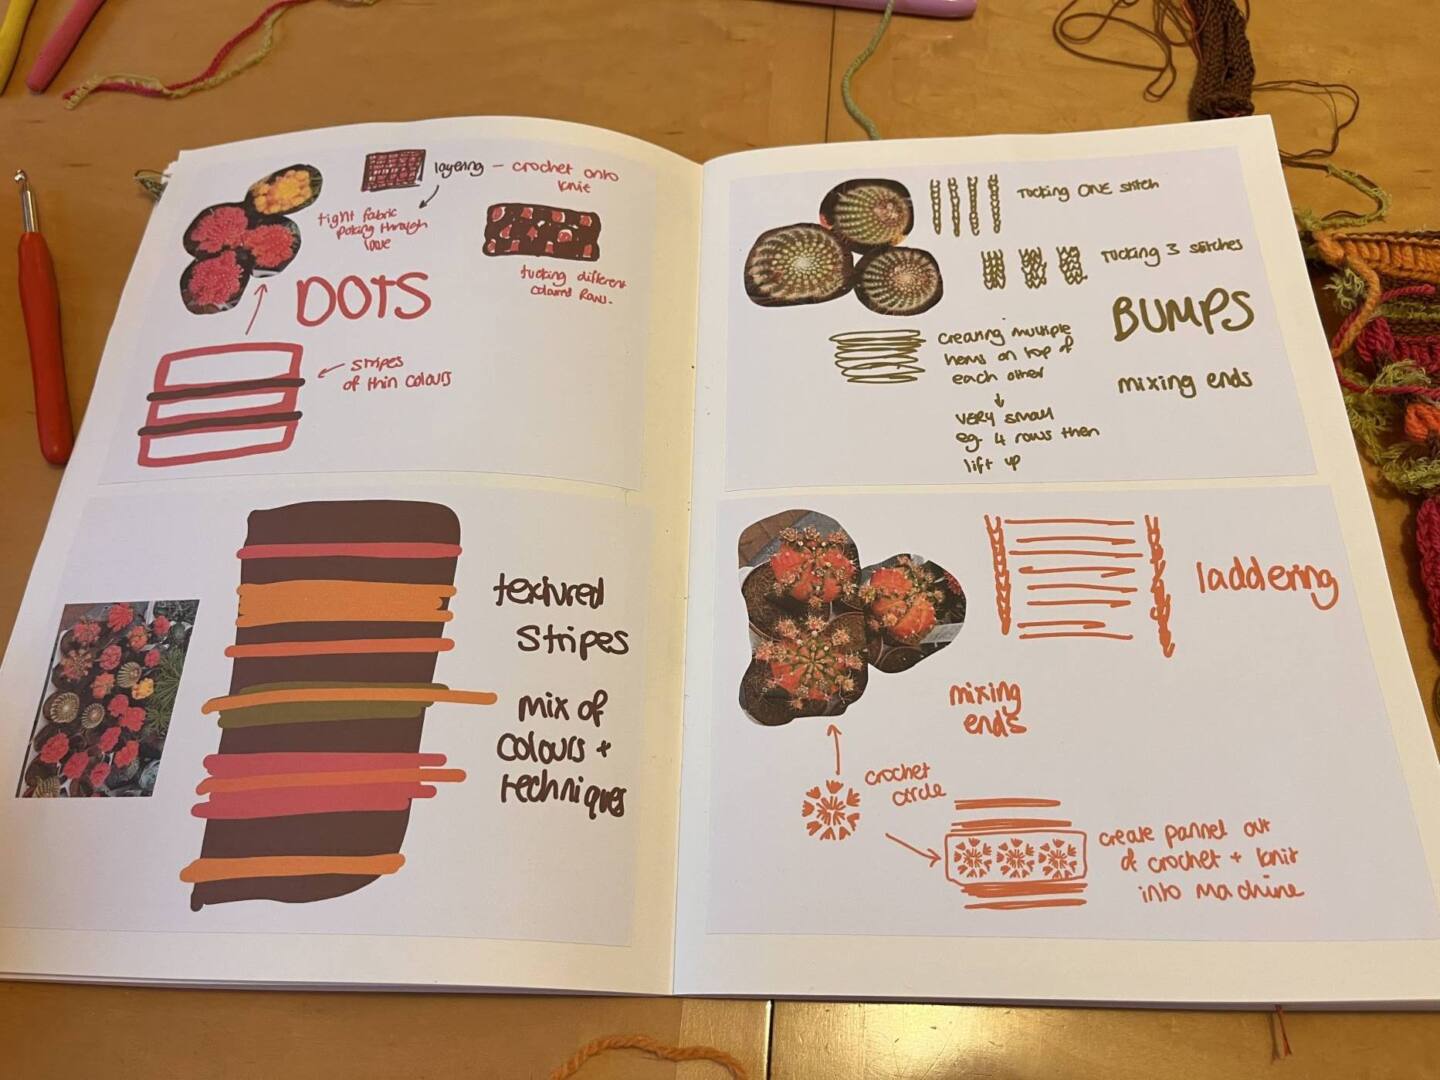 layering - crochet onto
knit
tight fabric
poking through
tucking different
DOTS
stripes
of thin colours
textured
stripes
mix of
colours +
techniques
Tucking ONE stitch
Tucking 3 stitches
BUMPS
mixing ends
creating multiple
hems on top of
each other
VERY small
eg. 4 rows then
lift up
laddering
mixing
ends
crochet
circle
create pannel out
of crochet + knit
into machine